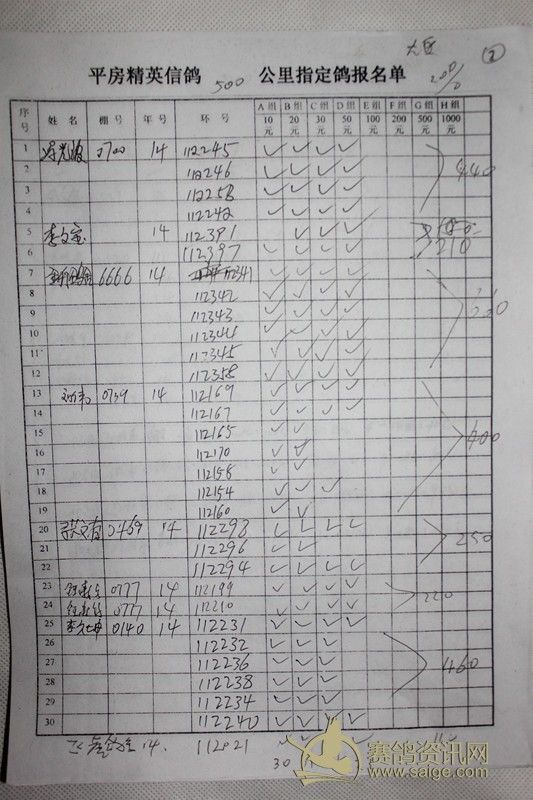 平房精英信鸽 500 公里指定鸽报名单
序号 姓名 棚号 年号 环号 A组10元 B组20元 C组30元 D组50元 E组100元 F组200元 G组500元 H组1000元
1 0700 14 112245 ✓ ✓ ✓ ✓
2 112246 ✓ ✓ ✓ ✓ 440
3 112258 ✓ ✓ ✓ ✓
4 112242 ✓ ✓ ✓ ✓
5 14 112391 ✓ ✓ ✓
6 112397 ✓ ✓ ✓ ✓ 210
7 6666 14 112341 ✓ ✓ ✓ ✓
8 112342 ✓ ✓ ✓ ✓
9 112343 ✓ ✓ ✓ ✓
10 112344 ✓ ✓ ✓ ✓
11 112345 ✓ ✓ ✓ ✓
12 112358 ✓ ✓ ✓ ✓
13 0739 14 112169 ✓ ✓ ✓ ✓
14 112167 ✓ ✓ ✓ ✓
15 112165 ✓ ✓ 400
16 112170 ✓ ✓
17 112158 ✓ ✓
18 112154 ✓ ✓ ✓
19 112160 ✓ ✓
20 14 112293 ✓ ✓ ✓ ✓
21 112296 ✓ ✓ 250
22 112294 ✓ ✓ ✓ ✓
23 0777 14 112199 ✓ ✓ ✓ ✓ 220
24 0777 14 112210 ✓ ✓ ✓ ✓
25 0140 14 112231 ✓ ✓ ✓ ✓
26 112232 ✓ ✓ ✓
27 112236 ✓ ✓ ✓ 460
28 112238 ✓ ✓ ✓
29 112234 ✓ ✓ ✓
30 112240 ✓ ✓ ✓ ✓
14. 112021
30
赛鸽资讯网
www.saige.com